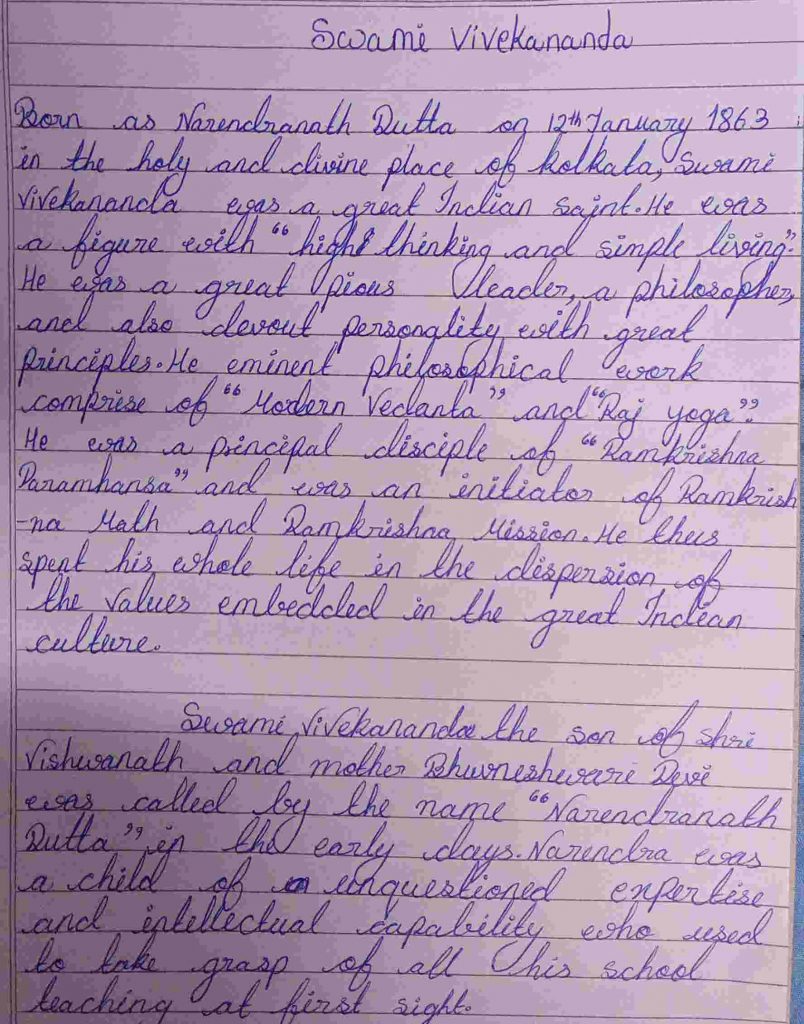 Swami Vivekananda
Born as Narendranath Dutta on 12th January 1863
in the holy and divine place of kolkata, Swami
Vivekananda was a great Indian saint. He was
a figure with "high thinking and simple living".
He was a great pious leader, a philosopher,
and also devout personality with great
principles. He eminent philosophical work
comprise of "Modern Vedanta" and "Raj yoga".
He was a principal disciple of "Ramkrishna
Paramhansa" and was an initiator of Ramkrish
-na Math and Ramkrishna Mission. He thus
spent his whole life in the dispersion of
the values embedded in the great Indian
culture.
Swami Vivekananda the son of Shri
Vishwanath and mother Bhuvneshwari Devi
was called by the name "Narendranath
Dutta" in the early days. Narendra was
a child of unquestioned expertise
and intellectual capability who used
to take grasp of all his school
teaching at first sight.